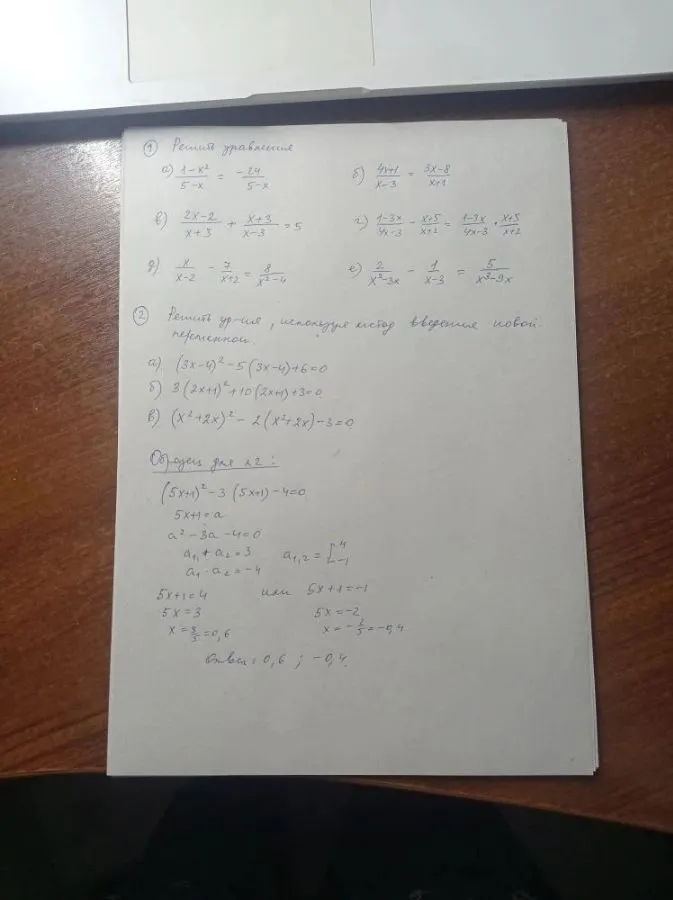 ① Решить уравнения
а) (1-x²)/(5-x) = -24/(5-x) б) (4x+1)/(x-3) = (3x-8)/(x+1)
в) (2x-2)/(x+3) + (x+3)/(x-3) = 5 г) (1-3x)/(4x-3) - (x+5)/(x+2) = (1-3x)/(4x-3) · (x+5)/(x+2)
д) x/(x-2) - 7/(x+2) = 8/(x²-4) е) 2/(x²-3x) - 1/(x-3) = 5/(x³-9x)
② Решить ур-ия, используя метод введения новой
переменной.
а) (3x-4)² - 5(3x-4)+6=0
б) 3(2x+1)² +10(2x+1)+3=0
в) (x²+2x)² - 2(x²+2x)-3=0
Образец для №2:
(5x+1)² - 3(5x+1) - 4=0
5x+1=a
a² - 3a - 4=0
a₁ + a₂ = 3 a₁,₂ = [4 -1
a₁ · a₂ = -4
5x+1=4 или 5x+1=-1
5x=3 5x=-2
x=3/5=0,6 x=-2/5=-0,4
Ответ: 0,6 ; -0,4.